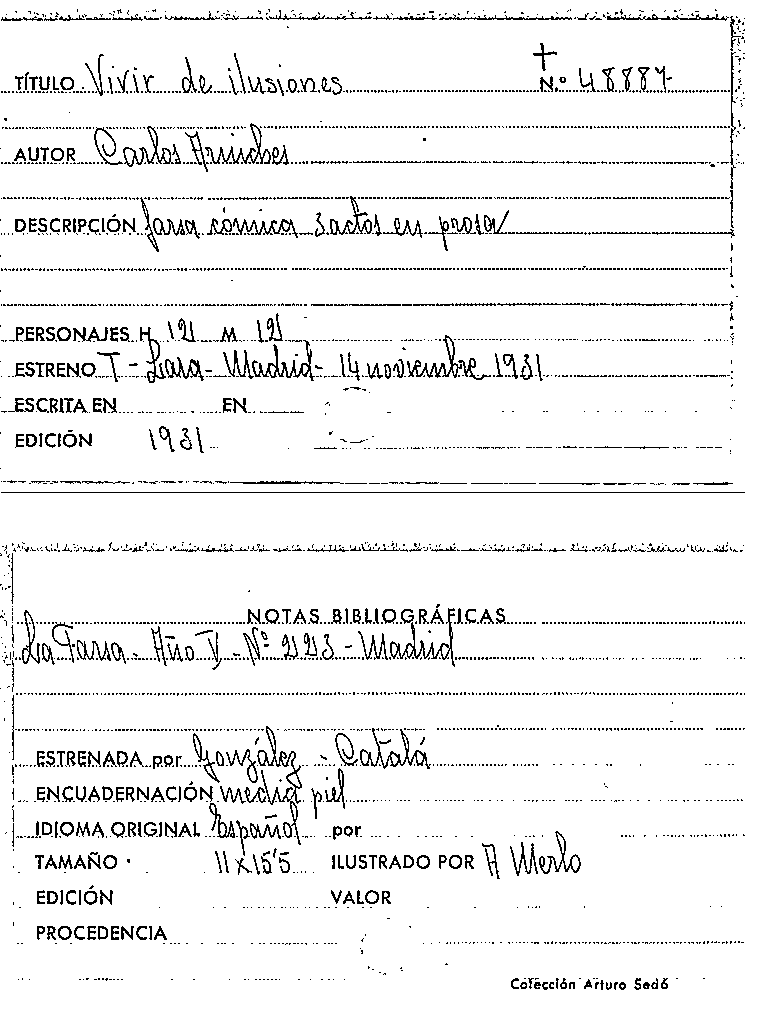 TÍTULO Vivir de ilusiones N.º 48887
AUTOR Carlos Arniches
DESCRIPCIÓN farsa cómica 3 actos en prosa
PERSONAJES H 12 M 12
ESTRENO T - Lara - Madrid - 14 noviembre 1931
ESCRITA EN EN
EDICIÓN 1931
NOTAS BIBLIOGRÁFICAS
La Farsa - Año V - Nº 223 - Madrid
ESTRENADA por González - Catalá
ENCUADERNACIÓN media piel
IDIOMA ORIGINAL Español por
TAMAÑO 11x15'5 ILUSTRADO POR A Merlo
EDICIÓN VALOR
PROCEDENCIA
Colección Arturo Sedó